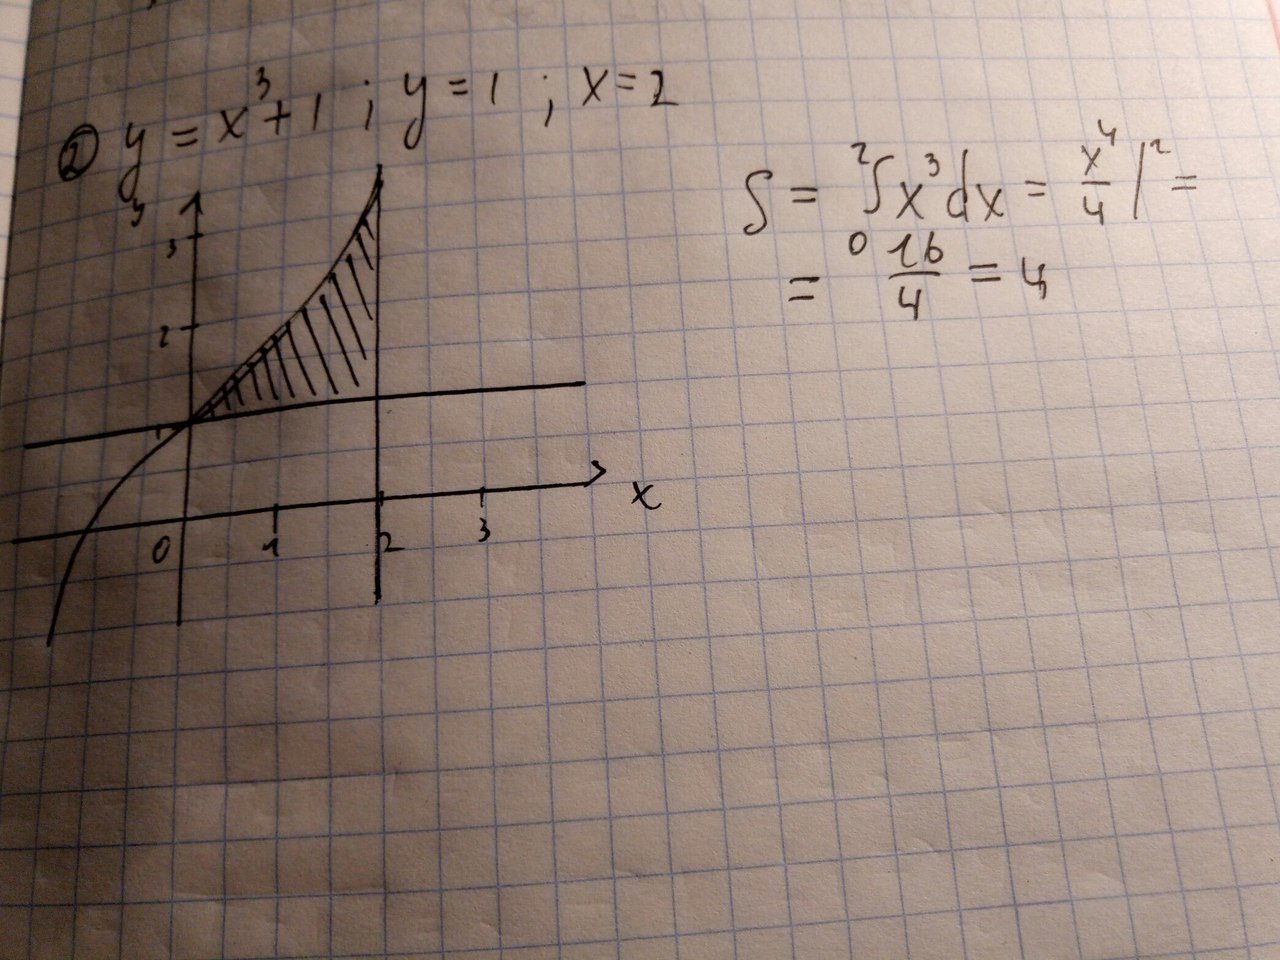 ② y = x³ + 1 ; y = 1 ; x = 2
S = ²∫₀ x³dx = x⁴/4 |² =
= 16/4 = 4
y
3
2
1
0 1 2 3 x